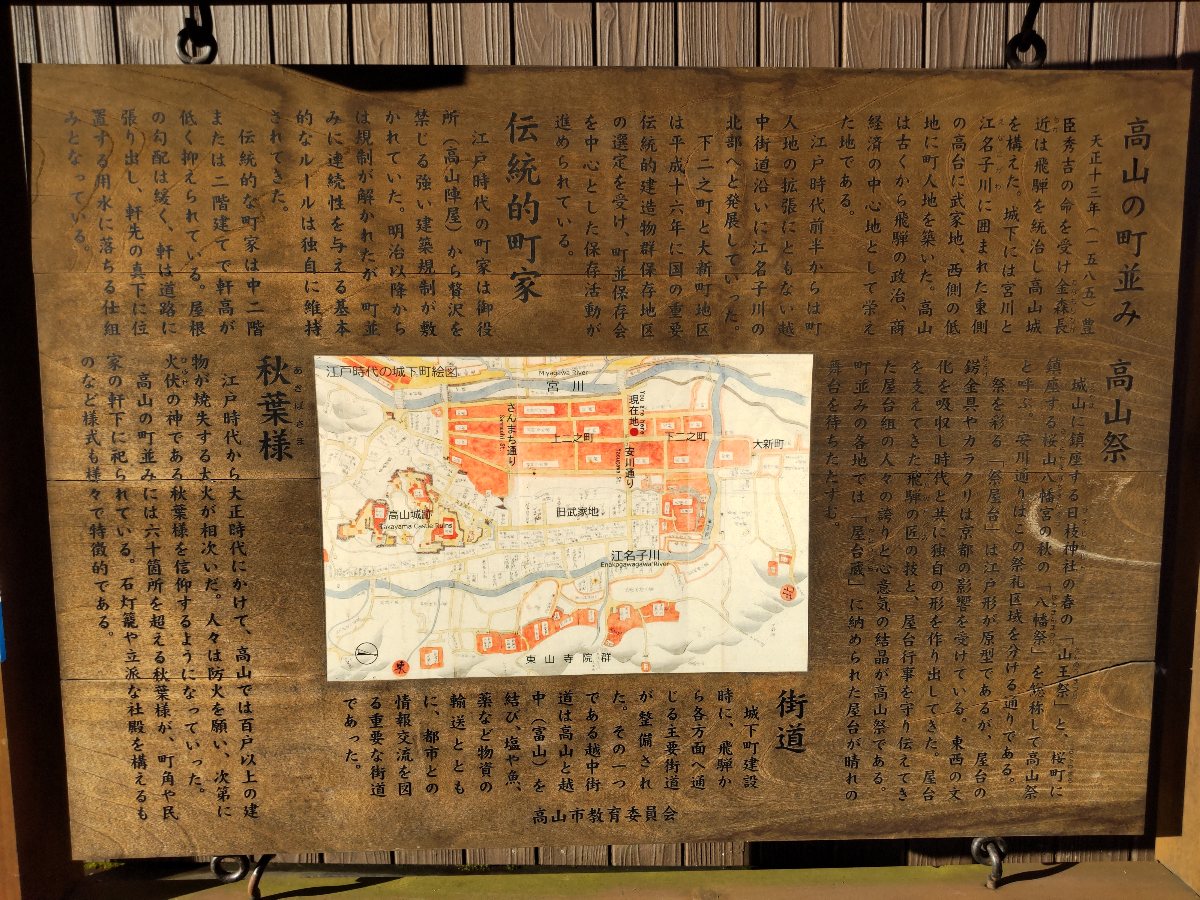 高山の町並み
天正十三年（一五八五）豊
臣秀吉の命を受け金森長
近は飛騨を統治し高山城
を構えた。城下には宮川と
江名子川に囲まれた東側
の高台に武家地、西側の低
地に町人地を築いた。高山
は古くから飛騨の政治、商
経済の中心地として栄え
た地である。
江戸時代前半からは町
人地の拡張にともない越
中街道沿いに江名子川の
北部へと発展していった。
下二之町と大新町地区
は平成十六年に国の重要
伝統的建造物群保存地区
の選定を受け、町並保存会
を中心とした保存活動が
進められている。
伝統的町家
江戸時代の町家は御役
所（高山陣屋）から贅沢を
禁じる強い建築規制が敷
かれていた。明治以降から
は規制が解かれたが、町並
みに連続性を与える基本
的なルールは独自に維持
されてきた。
伝統的な町家は中二階
または二階建てで軒高が
低く抑えられている。屋根
の勾配は緩く、軒は道路に
張り出し、軒先の真下に位
置する用水に落ちる仕組
みとなっている。
高山祭
城山に鎮座する日枝神社の春の「山王祭」と、桜町に
鎮座する桜山八幡宮の秋の「八幡祭」を総称して高山祭
と呼ぶ。安川通りはこの祭礼区域を分ける通りである。
祭を彩る「祭屋台」は江戸形が原型であるが、屋台の
錺金具やカラクリは京都の影響を受けている。東西の文
化を吸収し時代と共に独自の形を作り出してきた。屋台
を支えてきた飛騨の匠の技と、屋台行事を守り伝えてき
た屋台組の人々の誇りと心意気の結晶が高山祭である。
町並みの各地では「屋台蔵」に納められた屋台が晴れの
舞台を待ちたたずむ。
江戸時代の城下町絵図
Miyagawa River
宮川
さんまち通り
現在地
上二之町
下二之町
安川通り
大新町
高山城跡
Takayama Castle Ruins
旧武家地
江名子川
Enakogawagawa River
東山寺院群
街道
城下町建設
時に、飛騨か
ら各方面へ通
じる主要街道
が整備され
た。その一つ
である越中街
道は高山と越
中（富山）を
結び、塩や魚、
薬など物資の
輸送ととも
に、都市との
情報交流を図
る重要な街道
であった。
秋葉様
あきばさま
江戸時代から大正時代にかけて、高山では百戸以上の建
物が焼失する大火が相次いだ。人々は防火を願い、次第に
火伏の神である秋葉様を信仰するようになっていった。
高山の町並みには六十箇所を超える秋葉様が、町角や民
家の軒下に祀られている。石灯籠や立派な社殿を構えるも
のなど様式も様々で特徴的である。
高山市教育委員会